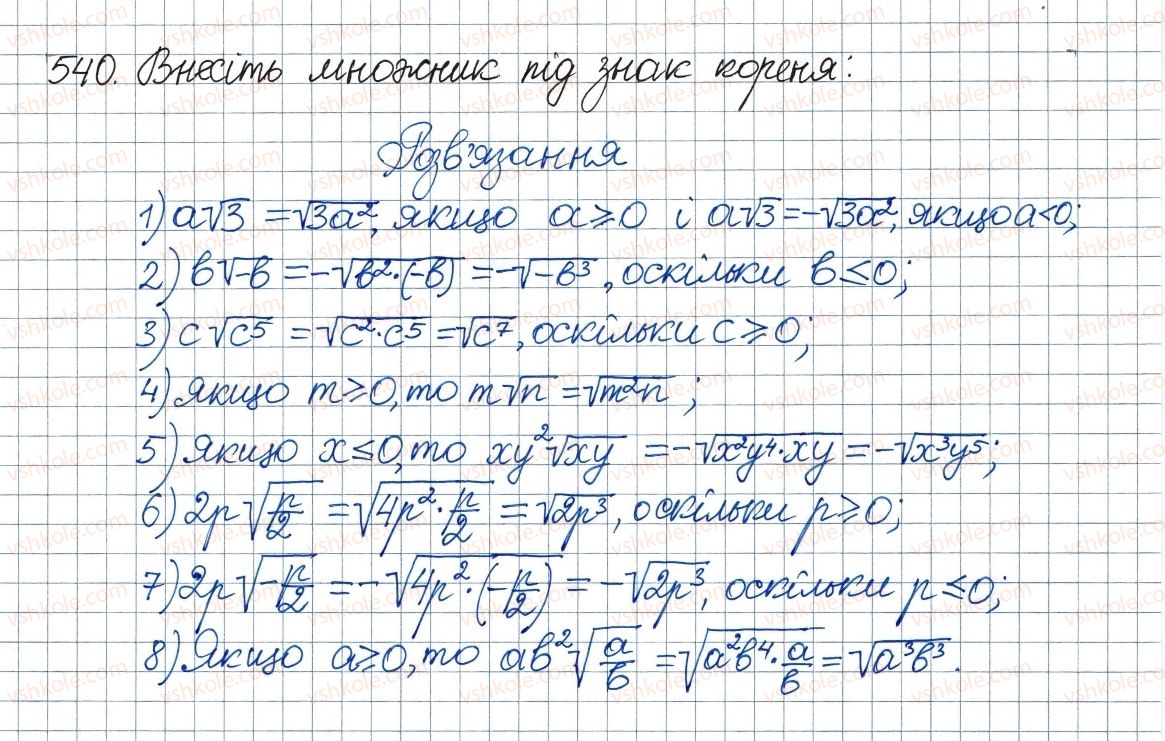 540. Внесіть множник під знак кореня:
Розв'язання
1) a√3 = √3a², якщо a ≥ 0 і a√3 = -√3a², якщо a < 0;
2) b√-b = -√b²·(-b) = -√-b³, оскільки b ≤ 0;
3) c√c5 = √c²·c5 = √c7, оскільки c ≥ 0;
4) якщо m ≥ 0, то m√n = √m²n ;
5) Якщо x ≤ 0, то xy²√xy = -√x²y⁴·xy = -√x³y⁵;
6) 2p√p/2 = √4p²·p/2 = √2p³, оскільки p ≥ 0;
7) 2p√-p/2 = -√4p²·(-p/2) = -√2p³, оскільки p ≤ 0;
8) Якщо a ≥ 0, то ab²√a/b = √a²b⁴·a/b = √a³b³.